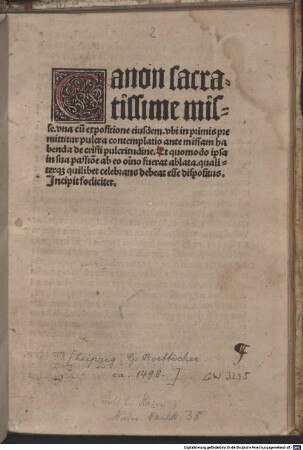 2
Canon sacra-
tissime mis-
se. vna cū expositione eiusdem. vbi in primis pre
mittitur pulcra contemplatio ante missam ha
benda de cristi pulcritudine. Et quomodo ipsa
in sua passiōe ab eo oīno fuerat ablata. quali
terqz quilibet celebrans debeat esse dispositus.
Incipit foeliciter.
[Leipzig, G. Boetticher
ca. 1498.] GW 3295
38